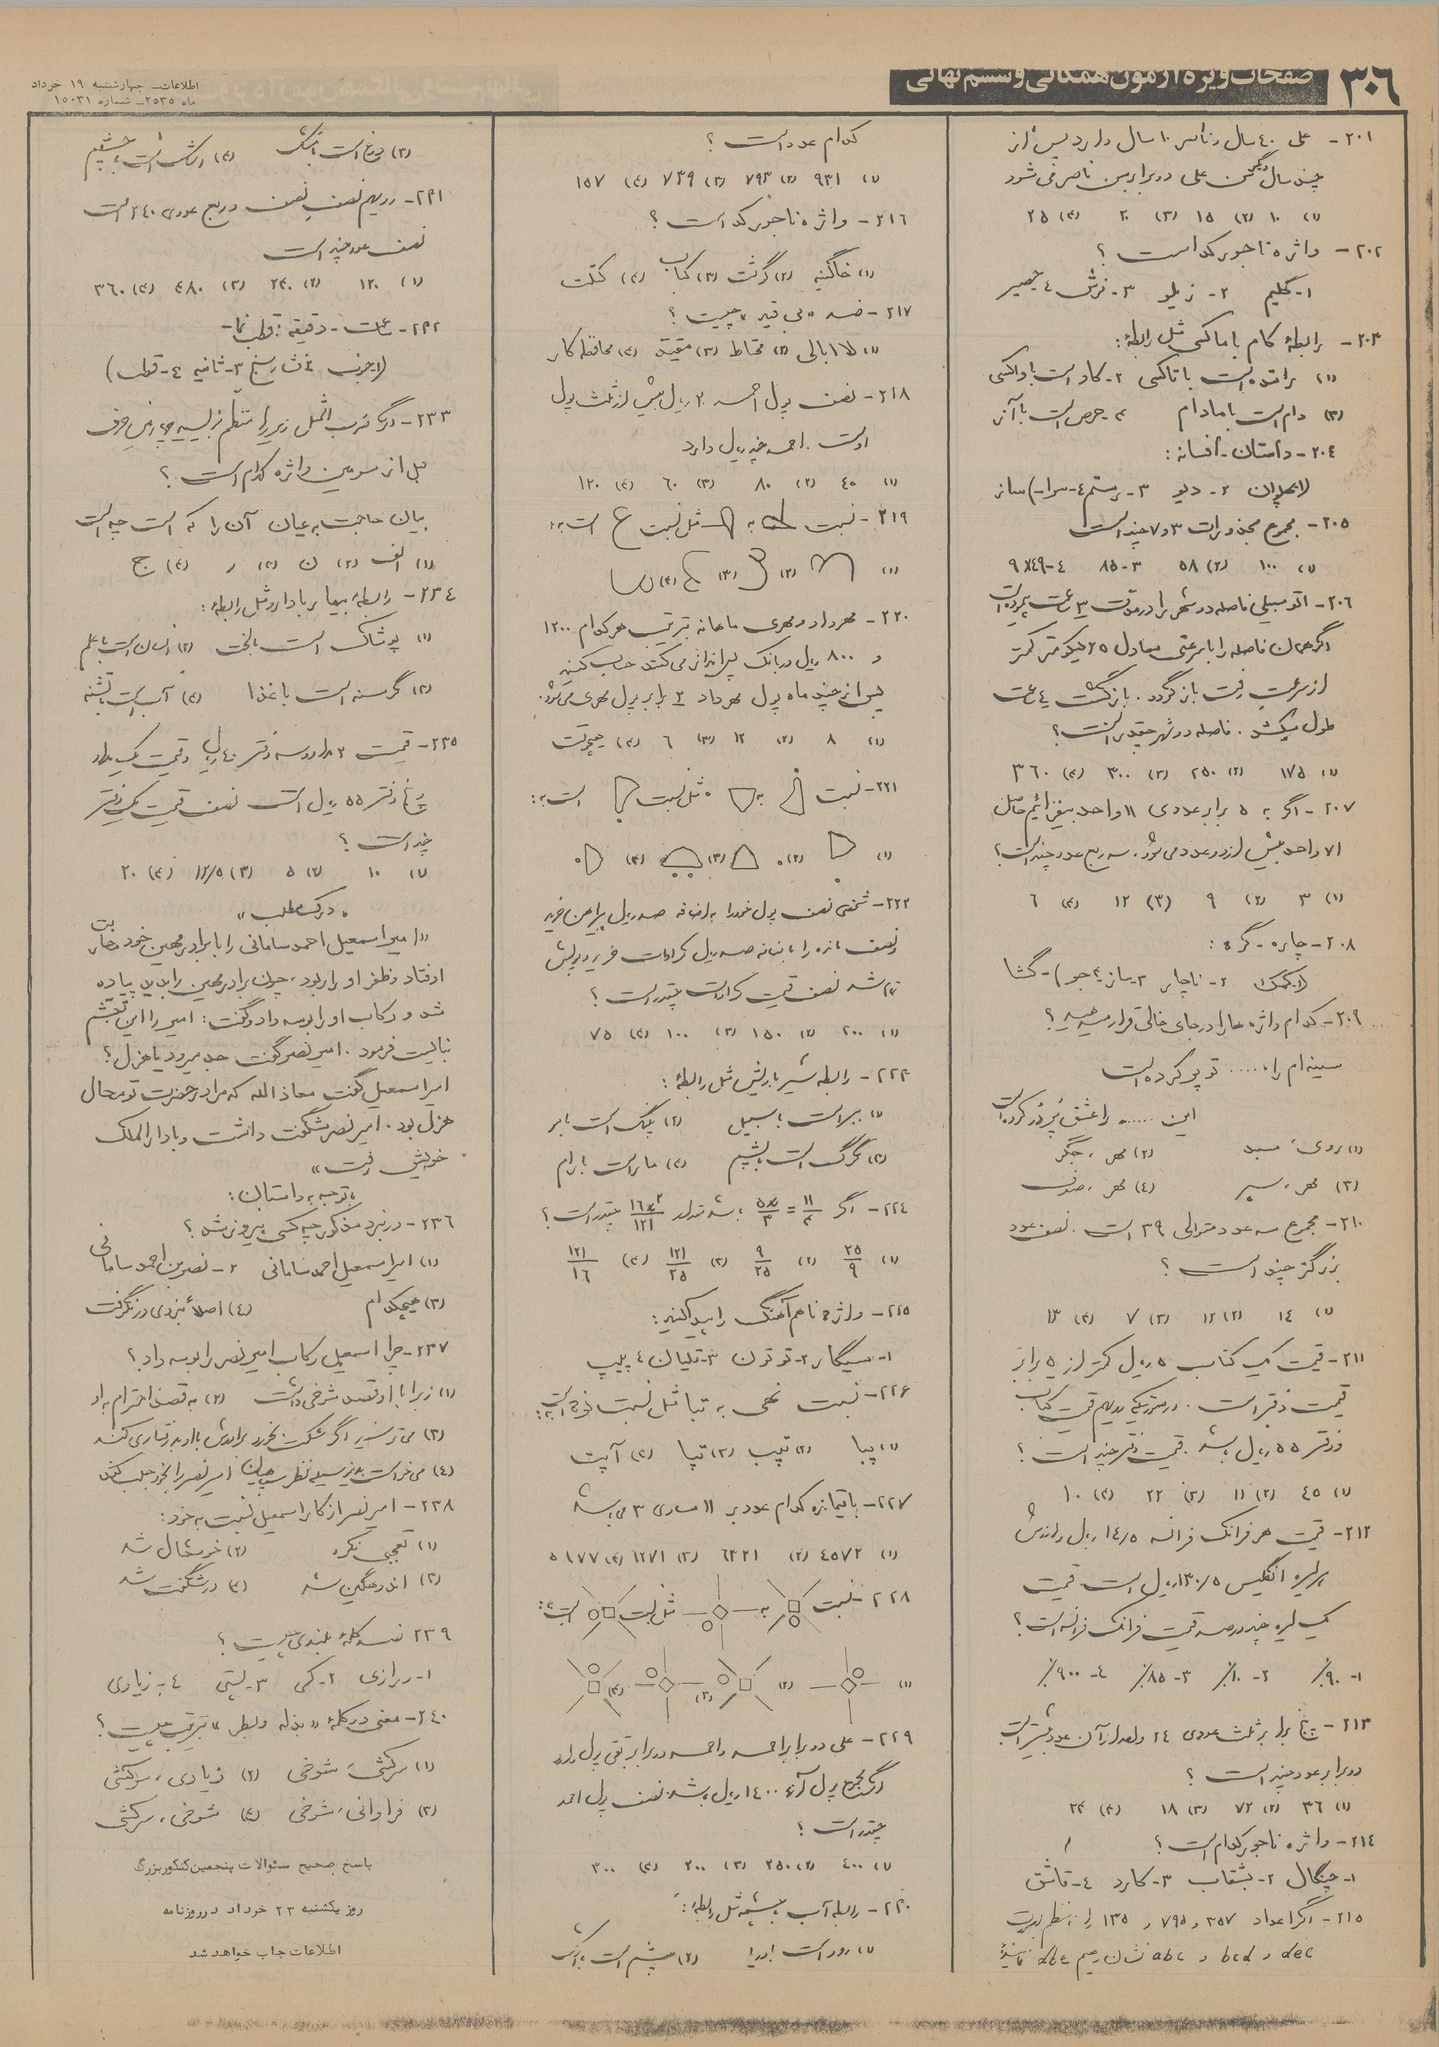 ۳۰۶
صفحات ویژه آزمون همگانی و ششم نهائی
اطلاعات_ چهارشنبه ۱۹ خرداد
ماه ۲۵۳۵_ شماره ۱۵۰۳۱
۲۰۱- علی ۴۰ سال و ناصر ۱۰ سال دارد پس از
چند سال دیگر سن علی دو برابر سن ناصر می شود
(۱) ۱۰ (۲) ۱۵ (۳) ۲۰ (۴) ۲۵
۲۰۲- واژه ناجور کدام است ؟
۱- گلیم ۲- زیلو ۳- فرش ۴- حصیر
۲۰۳- رابطهٔ کام با ماکسی مثل رابطهٔ :
(۱) است با تاکسی ۲- کاو است با واکسی
(۳) دام است با مادام ۴- حرص است با آز
۲۰۴- داستان - افسانه :
۲- دیو ۳- رستم ۴- سرا-) ساز
۲۰۵- مجموع مجذورات ۳ و ۷ چند است
(۱) ۱۰۰ (۲) ۵۸ ۳- ۸۵ ۴- ۹×۴۹
۲۰۶- اتومبیلی فاصله دو شهر را در مدت ۳ ساعت پیموده است
اگر همان فاصله را با سرعتی معادل ۲۵ کیلومتر کمتر
از سرعت رفت باز گردد . بازگشت ۴ ساعت
طول میکشد . فاصله دو شهر چقدر است ؟
(۱) ۱۷۵ (۲) ۲۵۰ (۳) ۳۰۰ (۴) ۳۶۰
۲۰۷- اگر به ۵ برابر عددی ۱۱ واحد بیفزائیم حاصل
۷۱ واحد بیش از دو عدد می شود . سه ربع عدد چند است ؟
(۱) ۳ (۲) ۹ (۳) ۱۲ (۴) ۶
۲۰۸- چاره - گره :
۲- ناچار ۳- ساز ۴- جو )- گشا
۲۰۹- کدام واژه ها را در جای خالی قرار میدهید ؟
سینه ام را ..... تو پر کرده است
این ..... را عشق پر در کرده است
(۱) روی ، سبد (۲) مهر ، جگر
(۳) مهر ، سپر (۴) مهر ، صدف
۲۱۰- مجموع سه عدد متوالی ۳۹ است . نصف عدد
بزرگتر چند است ؟
(۱) ۱۴ (۲) ۱۲ (۳) ۷ (۴) ۱۳
۲۱۱- قیمت یک کتاب ۵ ریال کمتر از ۵ برابر
قیمت دفتر است . در صورتیکه رویهم قیمت کتاب
و دفتر ۵۵ ریال باشد . قیمت دفتر چند است ؟
(۱) ۴۵ (۲) ۱۱ (۳) ۲۲ (۴) ۱۰
۲۱۲- قیمت هر فرانک فرانسه ۱۴/۵ ریال و ارزش
هر لیره انگلیس ۱۳۰/۵ ریال است . قیمت
یک لیره چند درصد قیمت فرانک فرانسه است ؟
۱- ۹۰٪ ۲- ۱۰٪ ۳- ۸۵٪ ۴- ۹۰۰٪
۲۱۳- پنج برابر ثلث عددی ۲۴ واحد از آن عدد بیشتر است
دو برابر عدد چند است ؟
(۱) ۳۶ (۲) ۷۲ (۳) ۱۸ (۴) ۲۴
۲۱۴- واژه ناجور کدام است ؟
۱- چنگال ۲- بشقاب ۳- کارد ۴- قاشق
۲۱۵- اگر اعداد ۳۵۷ و ۷۹۵ و ۱۳۵ را
abc و bcd و dec نشان دهیم dbe
کدام عدد است ؟
(۱) ۹۳۱ (۲) ۷۹۳ (۳) ۷۳۹ (۴) ۱۵۷
۲۱۶- واژه ناجور کدام است ؟
(۱) خاگینه (۲) گوشت (۳) کباب (۴) کتلت
۲۱۷- ضد «بی قید» چیست ؟
(۱) لاابالی (۲) محتاط (۳) مقید (۴) محافظه کار
۲۱۸- نصف پول احمد ۲۰ ریال بیش از ثلث پول
اوست . احمد چند ریال دارد
(۱) ۴۵ (۲) ۸۰ (۳) ۶۰ (۴) ۱۲۰
۲۱۹- نسبت به مثل نسبت ع است به :
(۱) (۲) (۳) (۴)
۲۲۰- مهرداد و مهری ماهانه بترتیب هر کدام ۱۲۰۰
و ۸۰۰ ریال در بانک پس انداز می کنند حساب کنید
پس از چند ماه پول مهرداد ۲ برابر پول مهری می شود .
(۱) ۸ (۲) ۱۲ (۳) ۶ (۴) هیچوقت
۲۲۱- نسبت به مثل نسبت است به :
(۱) (۲) (۳) (۴)
۲۲۲- شخصی نصف پول خود را به اضافه صد ریال پیراهن خرید
و نصف مانده را باضافه صد ریال کراوات خرید و پولش
تمام شد نصف قیمت کراوات چقدر است ؟
(۱) ۲۰۰ (۲) ۱۵۰ (۳) ۱۰۰ (۴) ۷۵
۲۲۳- رابطه شیر با ریش مثل رابطهٔ :
(۱) ببر است با سبیل (۲) پلنگ است با ببر
(۳) گرگ است با پشم (۴) مار است با رام
۲۲۴- اگر ۱۱/۴ = ۵x/۳ باشد مقدار ۱۶x²/۱۲۱ چقدر است ؟
(۱) ۲۵/۹ (۲) ۹/۲۵ (۳) ۱۲۱/۲۵ (۴) ۱۲۱/۱۶
۲۲۵- واژه ناهم آهنگ را پیدا کنید :
۱- سیگار ۲- توتون ۳- قلیان ۴- پیپ
۲۲۶- نسبت نهی به تبا مثل نسبت است به :
(۱) پبا (۲) تپب (۳) تپا (۴) آپت
۲۲۷- باقیمانده کدام عدد بر ۱۱ مساوی ۳ می باشد
(۱) ۴۵۷۲ (۲) ۶۳۲۱ (۳) ۱۲۷۱ (۴) ۵۸۷۷
۲۲۸- نسبت به مثل نسبت است به :
(۱) (۲) (۳) (۴)
۲۲۹- علی دو برابر احمد و احمد دو برابر تقی پول دارد
اگر مجموع پول آنها ۱۴۰۰ ریال باشد نصف پول احمد
چقدر است ؟
(۱) ۴۰۰ (۲) ۲۵۰ (۳) ۲۰۰ (۴) ۳۰۰
۲۳۰- رابطه آب با چشمه مثل رابطهٔ :
(۱) رود است با دریا (۲) چشم است با اشک
(۳) مرغ است با تخم (۴) اشک است با چشم
۲۳۱- رویهم نصف نصف و ربع عددی ۲۴۰ است
نصف عدد چند است
(۱) ۱۲۰ (۲) ۲۴۰ (۳) ۴۸۰ (۴) ۳۶۰
۲۳۲- ساعت - دقیقه : قطب نما -
(۱- جنوب ۳- ثانیه ۴- قطب)
۲۳۳- اگر ضرب المثل زیر را منظم بنویسید
قبل از سومین واژه کدام است ؟
بیان حاجت به عیان آن را که است چه است
(۱) الف (۲) ن (۳) ر (۴) ج
۲۳۴- رابطهٔ بیمار با دارو مثل رابطهٔ :
(۱) پوشاک است با لخت (۲) انسان است با علم
(۳) گرسنه است با غذا (۴) آب است با تشنه
۲۳۵- قیمت ۲ مداد و سه دفتر ۴۰ ریال و قیمت یک مداد
و پنج دفتر ۵۵ ریال است نصف قیمت یک دفتر
چند است ؟
(۱) ۱۰ (۲) ۵ (۳) ۱۲/۵ (۴) ۲۰
«درک مطلب»
«امیر اسمعیل احمد سامانی را با برادر مهین خود محاربت
اوفتاد و ظفر او را ربود ، چون برادر مهین را بدید پیاده
شد و رکاب او را بوسه داد و گفت : امیر را این تجشم
نبایست فرمود . امیر نصر گفت جد میرود یا هزل ؟
امیر اسمعیل گفت معاذ الله که مرا در حضرت تو مجال
هزل بود . امیر نصر شگفت داشت و بادار الملک
خویش رفت»
با توجه به داستان :
۲۳۶- در نبرد مذکور چه کسی پیروز شد ؟
(۱) امیر اسمعیل احمد سامانی ۲- نصر بن احمد سامانی
(۳) هیچکدام (۴) اصلاً نبردی در نگرفت
۲۳۷- چرا اسمعیل رکاب امیر نصر را بوسه داد ؟
(۱) زیرا با او قصد شوخی داشت (۲) به قصد احترام به او
(۳) می ترسید اگر شکست بخورد برادرش با او بدرفتاری کند
(۴) می خواست بدینوسیله نظر سپاهیان امیر نصر را بخود جلب کند
۲۳۸- امیر نصر از کار اسمعیل نسبت به خود :
(۱) تعجبی نکرد (۲) خوشحال شد
(۳) اندوهگین شد (۴) در شگفت شد
۲۳۹ ضد کلمهٔ بلندی چیست ؟
۱- درازی ۲- کمی ۳- پستی ۴- زیادی
۲۴۰- معنی دو کلمهٔ «بذله و بطر» بترتیب چیست ؟
(۱) سرکشی ، شوخی (۲) زیادی ، سرکشی
(۳) فراوانی ، شوخی (۴) شوخی ، سرکشی
پاسخ صحیح سئوالات پنجمین کنکور بزرگ
روز یکشنبه ۲۳ خرداد در روزنامه
اطلاعات چاپ خواهد شد